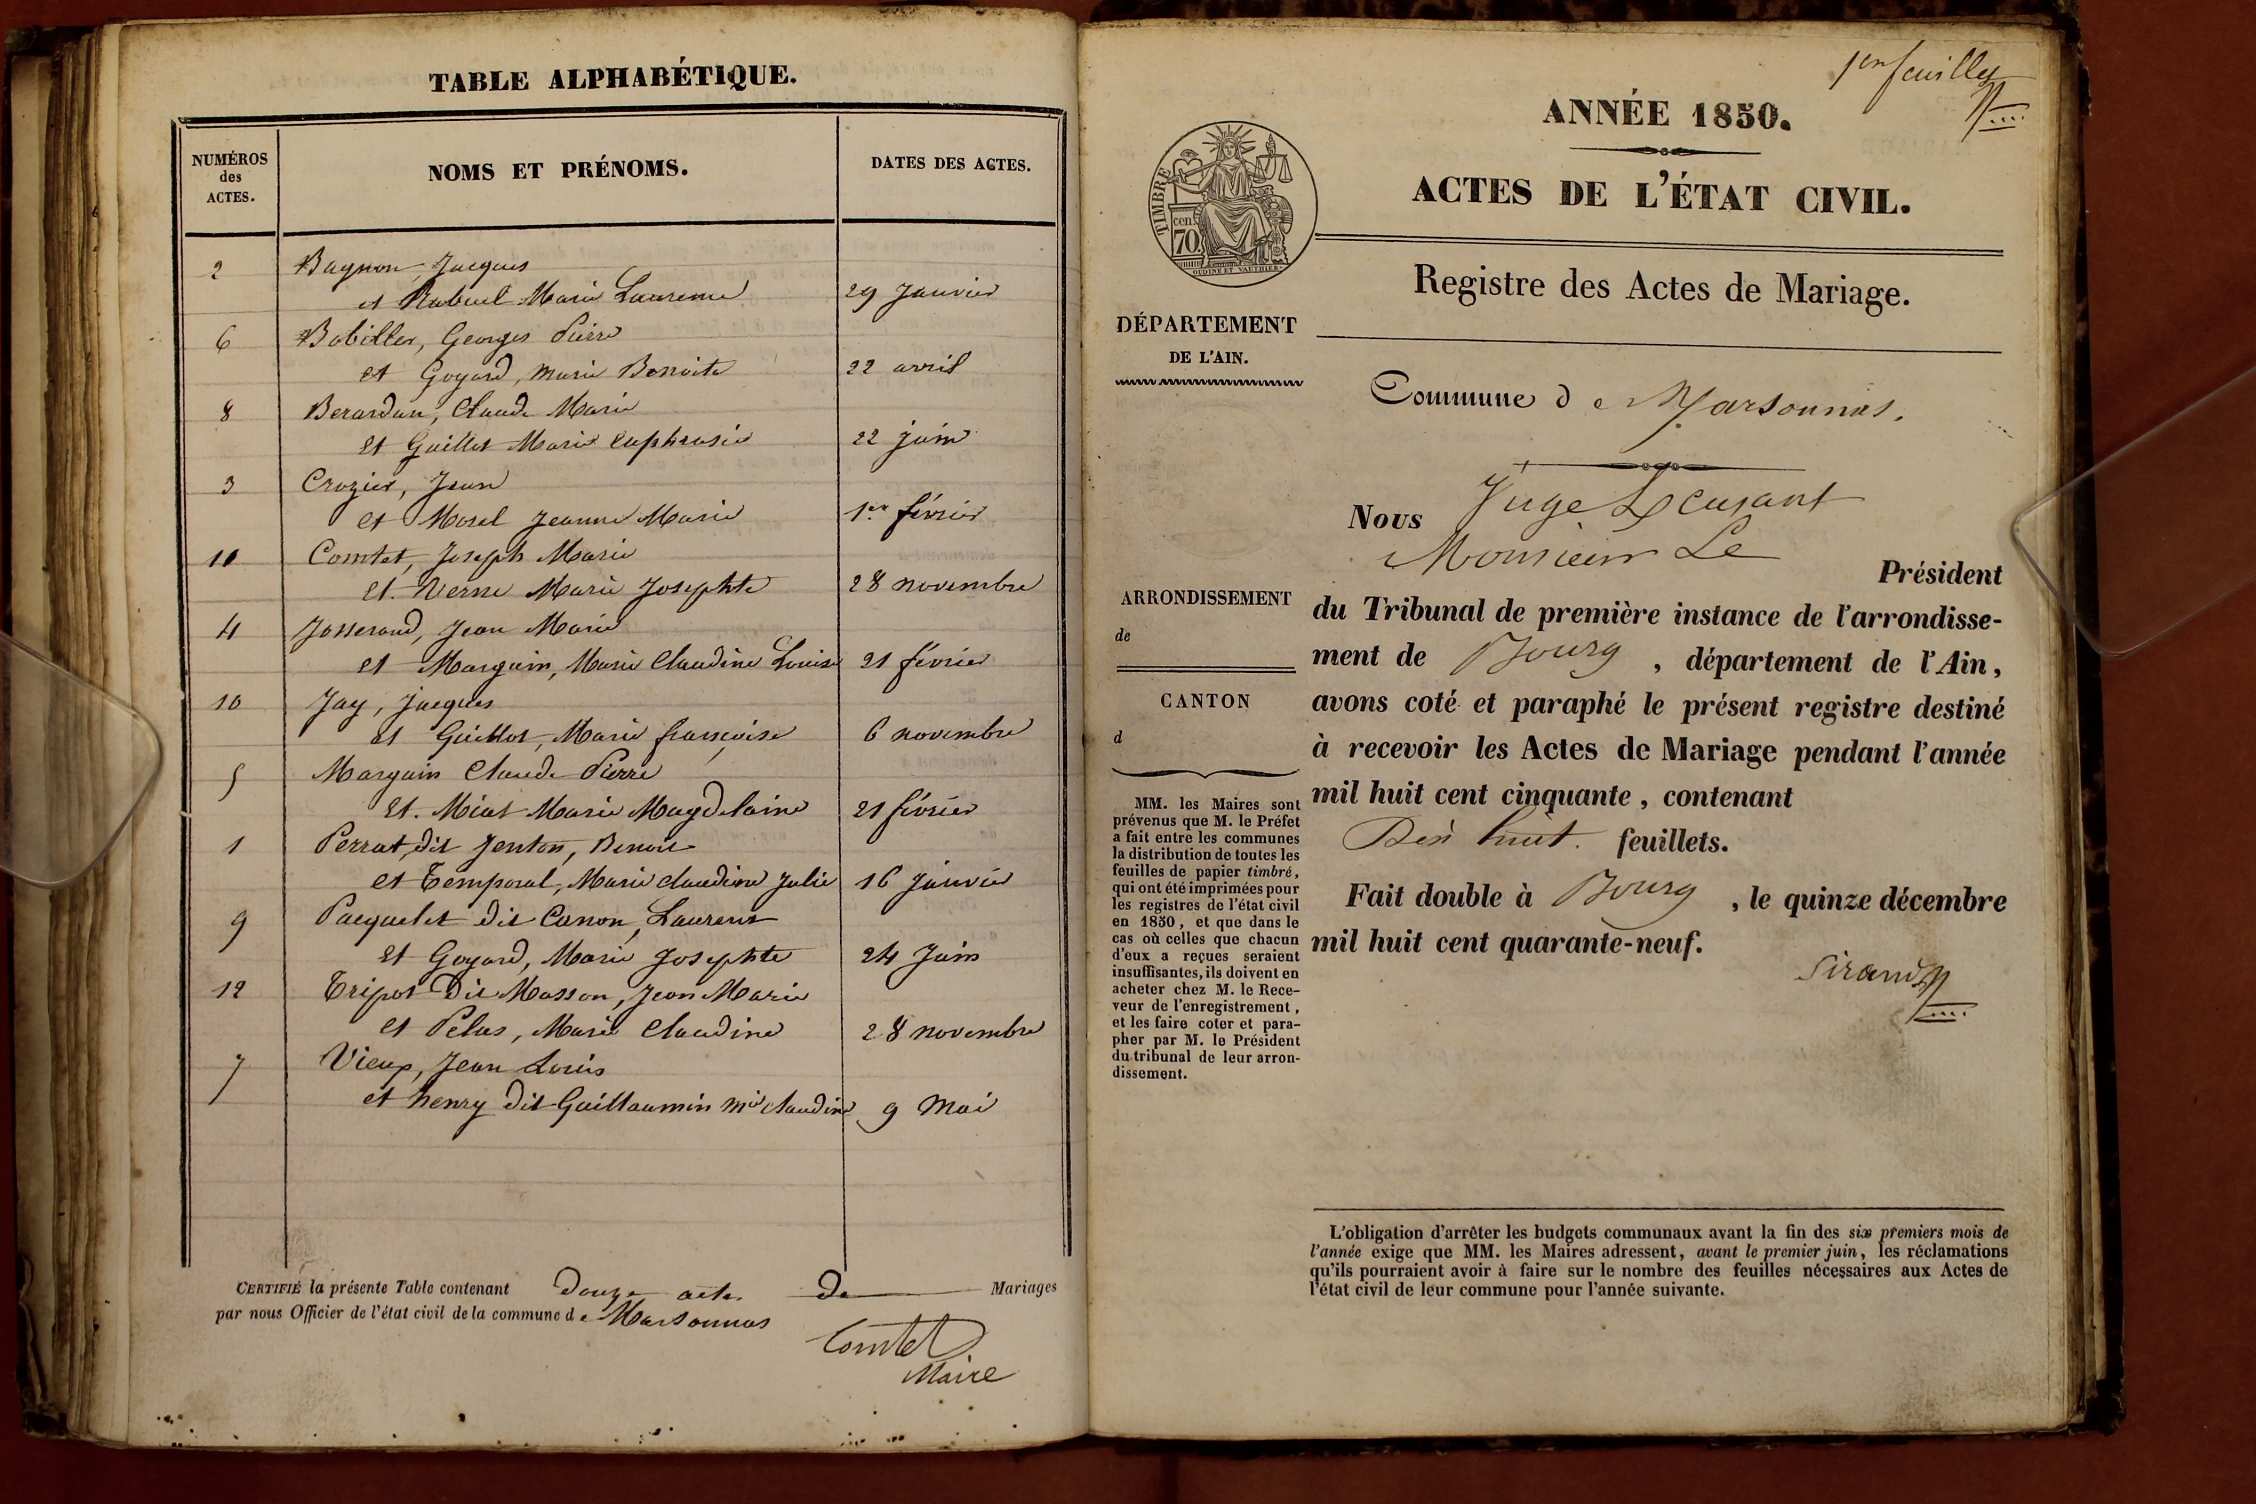 TABLE ALPHABÉTIQUE.
NUMÉROS
des
ACTES.
NOMS ET PRÉNOMS.
DATES DES ACTES.
2 Bagnon, Jacques
et Rabuel Marie Laurence 29 Janvier
6 Bobiller, Georges Pierre
et Goyard, marie Benoite 22 avril
8 Berardan, Claude Marie
et Guillot Marie Euphrasie 22 juin
3 Crozier, Jean
et Morel Jeanne Marie 1er février
11 Comtet, Joseph Marie
et Verne Marie Josephte 28 novembre
4 Josserand, Jean Marie
et Marguin, Marie Claudine Louise 21 février
10 Jay, jacques
et Guillot, Marie françoise 6 novembre
5 Marguin Claude Pierre
et Miat Marie Magdelaine 21 février
1 Perrat dit Jenton, Benoit
et Temporal, Marie claudine Julie 16 Janvier
9 Pacquelet dit Canon, Laurent
et Goyard, Marie Josephte 24 Juin
12 Tripot Dit Masson, Jean Marie
et Pelus, Marie Claudine 28 novembre
7 Vieux, Jean Louis
et henry dit Guillaumin mie claudine 9 Mai
CERTIFIÉ la présente Table contenant douze actes de Mariages
par nous Officier de l'état civil de la commune de Marsonnas
Comtet
Maire
1er feuillet
ANNÉE 1850.
ACTES DE L'ÉTAT CIVIL.
TIMBRE
cen.
70
OUDINÉ ET VAUTHIER
Registre des Actes de Mariage.
DÉPARTEMENT
DE L'AIN.
Commune de Marsonnas.
Nous Juge
Monsieur Le
Président
du Tribunal de première instance de l'arrondisse-
ment de Bourg, département de l'Ain,
avons coté et paraphé le présent registre destiné
à recevoir les Actes de Mariage pendant l'année
mil huit cent cinquante, contenant
Dix huit feuillets.
Fait double à Bourg, le quinze décembre
mil huit cent quarante-neuf.
Sirand
ARRONDISSEMENT
de
CANTON
d
MM. les Maires sont
prévenus que M. le Préfet
a fait entre les communes
la distribution de toutes les
feuilles de papier timbré,
qui ont été imprimées pour
les registres de l'état civil
en 1850, et que dans le
cas où celles que chacun
d'eux a reçues seraient
insuffisantes, ils doivent en
acheter chez M. le Rece-
veur de l'enregistrement,
et les faire coter et para-
pher par M. le Président
du tribunal de leur arron-
dissement.
L'obligation d'arrêter les budgets communaux avant la fin des six premiers mois de
l'année exige que MM. les Maires adressent, avant le premier juin, les réclamations
qu'ils pourraient avoir à faire sur le nombre des feuilles nécessaires aux Actes de
l'état civil de leur commune pour l'année suivante.